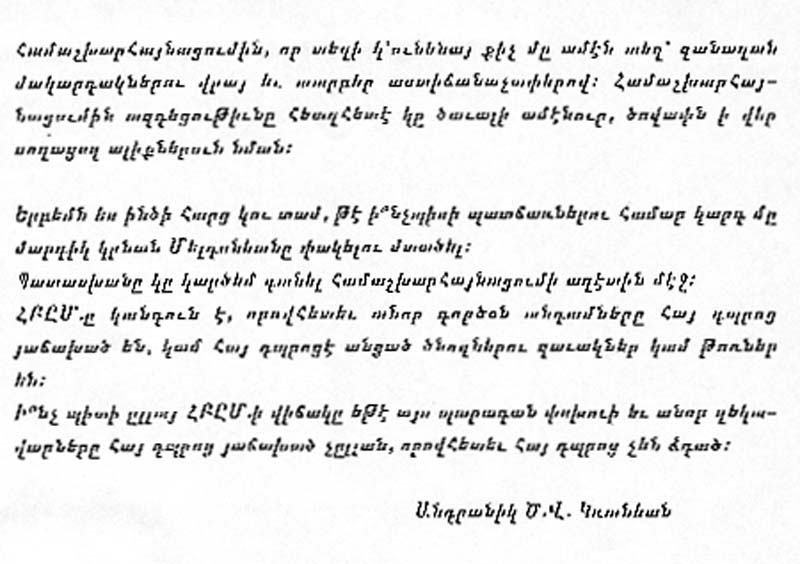 Համաշխարհայնացումին, որ տեղի կ'ունենայ քիչ մը ամէն տեղ՝ զանազան
մակարդակներու վրայ եւ տարբեր աստիճանաչափերով։ Համաշխարհայ-
նացումին ազդեցութիւնը հետզհետէ կը ծաւալի ամէնուր, ծովափն ի վեր
սողացող ալիքներուն նման։
Երբեմն ես ինծի հարց կու տամ, թէ ի՞նչպիսի պատճառներու համար կարգ մը
մարդիկ կրնան Մելգոնեանը փակելու մտածել։
Պատասխանը կը կարծեմ գտնել համաշխարհայնացումի աղէտին մէջ։
ՀԲԸՄ՝ը կանգուն է, որովհետեւ անոր գործօն անդամները հայ դպրոց
յաճախած են, կամ հայ դպրոցէ անցած ծնողներու զաւակներ կամ թոռներ
են։
Ի՞նչ պիտի ըլլայ ՀԲԸՄ.ի վիճակը եթէ այս պարագան փոխուի եւ անոր ղեկա-
վարները հայ դպրոց յաճախած չըլլան, որովհետեւ հայ դպրոց չեն ձգած։
Անդրանիկ Ծ.Վ. Կռանեան